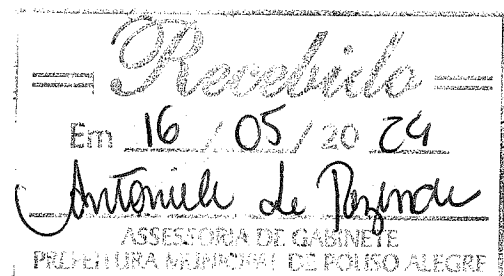 Recebido
Em 16 / 05 / 20 24
de
ASSESSORIA DE GABINETE
PREFEITURA MUNICIPAL DE POUSO ALEGRE